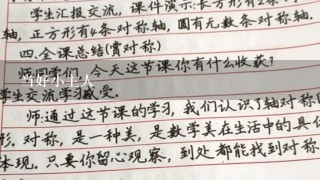 学生汇报交流，课件演示：长方形有2条
轴，正方形有4条对称轴，圆有无数条对称轴.
四.全课总结(赏对称)
师:同学们，今天这节课你有什么收获？
当好小主人
学生交流学习感受.
师:通过这节课的学习，我们认识了轴对称
形.对称，是一种美，是数学美在生活中的具
体现.只要你留心观察，到处都能找到对称